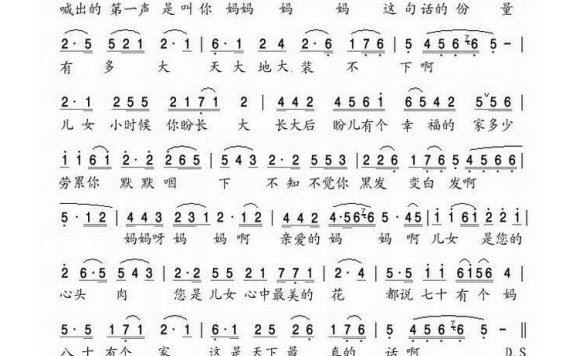 喊出的 第一声 是叫你 妈妈 妈 妈 这句话的份 量
2·5 521 2·1 | 6·1 24 2·6 176 | 5 4566 5 - |
有多 大 天大地大 装 不 下啊
2·1 255 2171 2 | 442 4561 6542 55 |
儿女 小时候 你盼长 大 长大后 盼儿有个 幸福的 家多少
1161 2·2 265 | 543 2·2 553 | 226 176 54566 |
劳累你 默默咽 下 不知 不觉你 黑发 变白 发啊
5·12 | 443 2231 2·12 | 442 4·566 5·45 | 1161 221 |
妈妈呀 妈妈 啊 亲爱的 妈 妈啊 儿女 是您的
6·5 543 | 2·1 7124 2171 | 2·4 565 11 6156 |
心头 肉 您是 儿女心中最美的 花 都说 七十有个 妈
5·5 171 2·1 | 6·1 242 2176 | 5 4566 5 - ‖
八十有个 家 这是天下最 真的 话啊 D.S